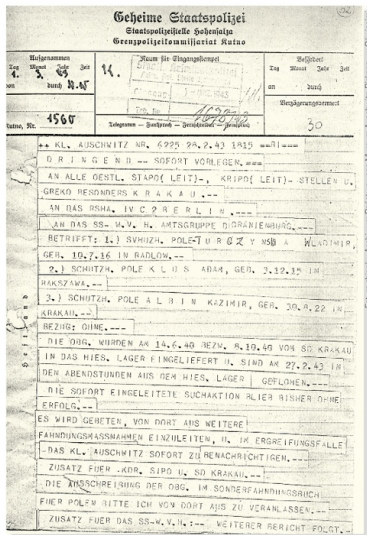 Geheime Staatspolizei
Staatspolizeistelle Hohensalza
Grenzpolizeikommissariat Kutno
Aufgenommen
Tag Monat Jahr Zeit
Raum für Eingangsstempel
Befördert
Tag Monat Jahr Zeit
1. 3. 43
von durch
an durch
Verzögerungsvermerk
Kutno, Nr. 1560
Telegramm — Funkspruch — Fernschreiben — Fernspruch
30
++ KL. AUSCHWITZ NR. 6225 28.2.43 1815 ==
D R I N G E N D -- SOFORT VORLEGEN.===
AN ALLE OESTL. STAPO( LEIT)-, KRIPO( LEIT)- STELLEN U.
GREKO BESONDERS K R A K A U.--
AN DAS RSHA, IV C 2 B E R L I N.---
AN DAS SS- W.V. H. AMTSGRUPPE D ORANIENBURG.--
BETRIFFT: 1.) POLE WLADIMIR,
GEB. 10.7.16 IN RADLOW.--
2.) SCHUTZH. POLE K L U S ADAM, GEB. 3.12.15 IN
WARSZAWA.--
3.) SCHUTZH. POLE A L B I N KAZIMIR, GEB. 30.8.22 IN
KRAKAU.--
BEZUG: OHNE.---
DIE OBG. WURDEN AM 14.6.40 BEZW. 8.10.40 VON SD KRAKAU
IN DAS HIES. LAGER EINGELIEFERT U. SIND AM 27.2.43 IN
DEN ABENDSTUNDEN AUS DEM HIES. LAGER GEFLOHEN.---
DIE SOFORT EINGELEITETE SUCHAKTION BLIEB BISHER OHNE
ERFOLG.--
ES WIRD GEBETEN, VON DORT AUS WEITERE
FAHNDUNGSMASSNAHMEN EINZULEITEN, U. IM ERGREIFUNGSFALLE
DAS KL. AUSCHWITZ SOFORT ZU BENACHRICHTIGEN.--
ZUSATZ FUER -KDR. SIPO U. SD KRAKAU.--
DIE AUSSCHREIBUNG DER OBG. IM SONDERFAHNDUNGSBUCH
FUER POLEN BITTE ICH VON DORT AUS ZU VERANLASSEN.--
ZUSATZ FUER DAS SS-W.V.H.:-- WEITERER BERICHT FOLGT.-